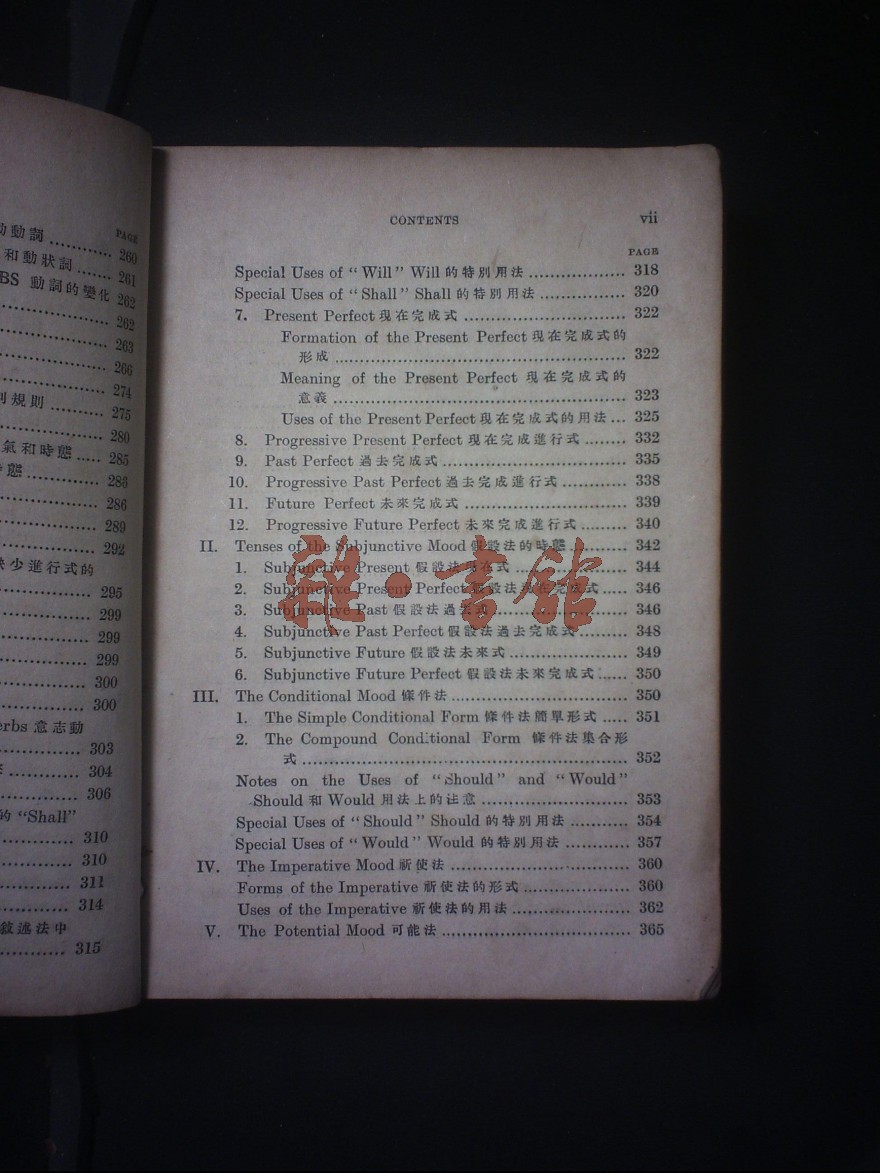 動詞 ............ PAGE 260
和動狀詞 ....... 261
BS 動詞的變化 262
262
263
266
274
則規則 ......... 275
280
氣和時態 ..... 285
態 ............. 286
286
289
292
少進行式的
295
299
299
299
300
300
erbs 意志動
303
304
306
的 “Shall”
310
310
311
314
敍述法中
315
CONTENTS vii
PAGE
Special Uses of “Will” Will 的特別用法 ................. 318
Special Uses of “Shall” Shall 的特別用法 ............... 320
7. Present Perfect 現在完成式 ............................ 322
Formation of the Present Perfect 現在完成式的
形成 .................................................... 322
Meaning of the Present Perfect 現在完成式的
意義 .................................................... 323
Uses of the Present Perfect 現在完成式的用法 ... 325
8. Progressive Present Perfect 現在完成進行式 ........ 332
9. Past Perfect 過去完成式 ................................ 335
10. Progressive Past Perfect 過去完成進行式 ............ 338
11. Future Perfect 未來完成式 ............................ 339
12. Progressive Future Perfect 未來完成進行式 ......... 340
II. Tenses of the Subjunctive Mood 假設法的時態 .......... 342
1. Subjunctive Present 假設法現在式 .................... 344
2. Subjunctive Present Perfect 假設法現在完成式 ..... 346
3. Subjunctive Past 假設法過去式 ........................ 346
4. Subjunctive Past Perfect 假設法過去完成式 ......... 348
5. Subjunctive Future 假設法未來式 .................... 349
6. Subjunctive Future Perfect 假設法未來完成式 ..... 350
III. The Conditional Mood 條件法 ............................... 350
1. The Simple Conditional Form 條件法簡單形式 ..... 351
2. The Compound Conditional Form 條件法集合形
式 ......................................................... 352
Notes on the Uses of “Should” and “Would”
Should 和 Would 用法上的注意 ......................... 353
Special Uses of “Should” Should 的特別用法 ........... 354
Special Uses of “Would” Would 的特別用法 ............ 357
IV. The Imperative Mood 祈使法 ............................... 360
Forms of the Imperative 祈使法的形式 .................. 360
Uses of the Imperative 祈使法的用法 .................... 362
V. The Potential Mood 可能法 .................................. 365
雜·書館